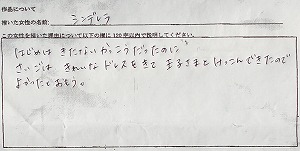 作品について
描いた女性の名前: シンデレラ
この女性を描いた理由について以下の欄に120字以内で説明してください。
はじめは きたないかっこうだったのに
さいごは きれいな ドレスをきて 王子さまと けっこんできたので
よかったとおもう。